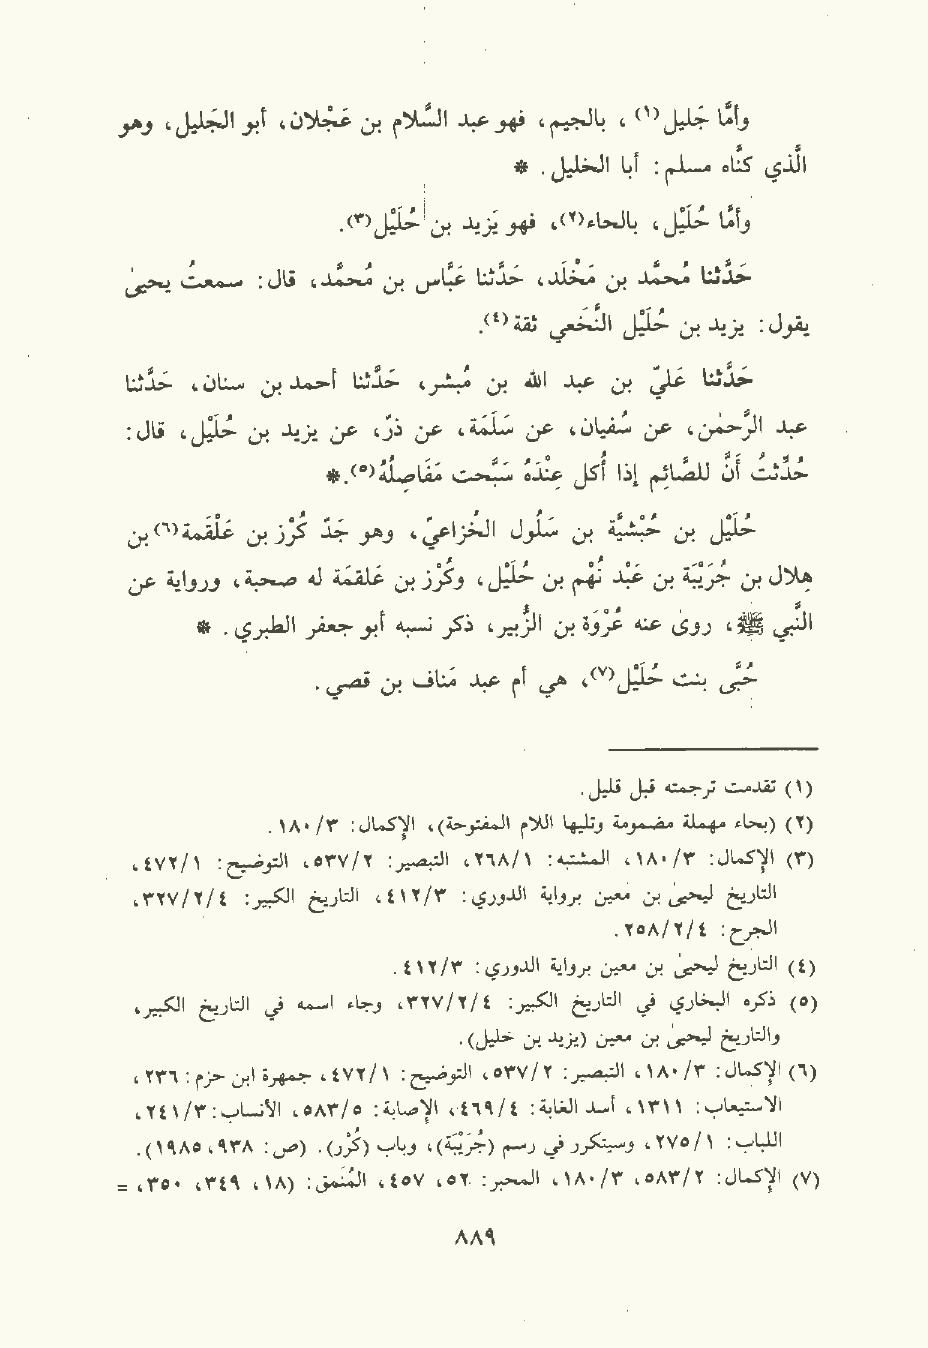 وأمَّا جَليل(١) ، بالجيم، فهو عبد السَّلام بن عَجْلان، أبو الجَليل، وهو
الَّذي كنَّاه مسلم: أبا الخليل. *
وأمَّا حُلَيْل، بالحاء(٢)، فهو يَزيد بن حُلَيْل(٣).
حَدَّثنا مُحمَّد بن مَخْلَد، حَدَّثنا عَبَّاس بن مُحمَّد، قال: سمعتُ يحيىٰ
يقول: يزيد بن حُلَيْل النَّخَعي ثقة(٤).
حَدَّثنا عَليّ بن عبد الله بن مُبشر، حَدَّثنا أحمد بن سنان، حَدَّثنا
عبد الرَّحمٰن، عن سُفيان، عن سَلَمَة، عن ذرّ، عن يزيد بن حُلَيْل، قال:
حُدِّثتُ أنَّ للصَّائِم إذا أُكل عِنْدَهُ سَبَّحت مَفَاصِلُهُ(٥).*
حُلَيْل بن حُبْشيَّة بن سَلُول الخُزاعيّ، وهو جَدّ كُرْز بن عَلْقَمة(٦) بن
هِلال بن جُرَيْبَة بن عَبْد نُهْم بن حُلَيْل، وكُرْز بن عَلقمَة له صحبة، ورواية عن
النَّبي ﷺ، روىٰ عنه عُرْوَة بن الزُّبير، ذكر نسبه أبو جعفر الطبري. *
حُبَّى بنت حُلَيْل(٧)، هي أم عبد مَناف بن قصي.
(١) تقدمت ترجمته قبل قليل.
(٢) (بحاء مهملة مضمومة وتليها اللام المفتوحة)، الإكمال: ١٨٠/٣.
(٣) الإكمال: ١٨٠/٣، المشتبه: ٢٦٨/١، التبصير: ٥٣٧/٢، التوضيح: ٤٧٢/١،
التاريخ ليحيىٰ بن معين برواية الدوري: ٤١٢/٣، التاريخ الكبير: ٣٢٧/٢/٤،
الجرح: ٢٥٨/٢/٤.
(٤) التاريخ ليحيىٰ بن معين برواية الدوري: ٤١٢/٣.
(٥) ذكره البخاري في التاريخ الكبير: ٣٢٧/٢/٤، وجاء اسمه في التاريخ الكبير،
والتاريخ ليحيىٰ بن معين (يزيد بن خليل).
(٦) الإكمال: ١٨٠/٣، التبصير: ٥٣٧/٢، التوضيح: ٤٧٢/١، جمهرة ابن حزم: ٢٣٦،
الاستيعاب: ١٣١١، أسد الغابة: ٤٦٩/٤، الإصابة: ٥٨٣/٥، الأنساب: ٢٤١/٣،
اللباب: ٢٧٥/١، وسيتكرر في رسم (جُرَيْبَة)، وباب (كُرْز). (ص: ٩٣٨، ١٩٨٥).
(٧) الإكمال: ٥٨٣/٢، ١٨٠/٣، المحبر: ٥٢، ٤٥٧، المُنَمق: (١٨، ٣٤٩، ٣٥٠، =
٨٨٩